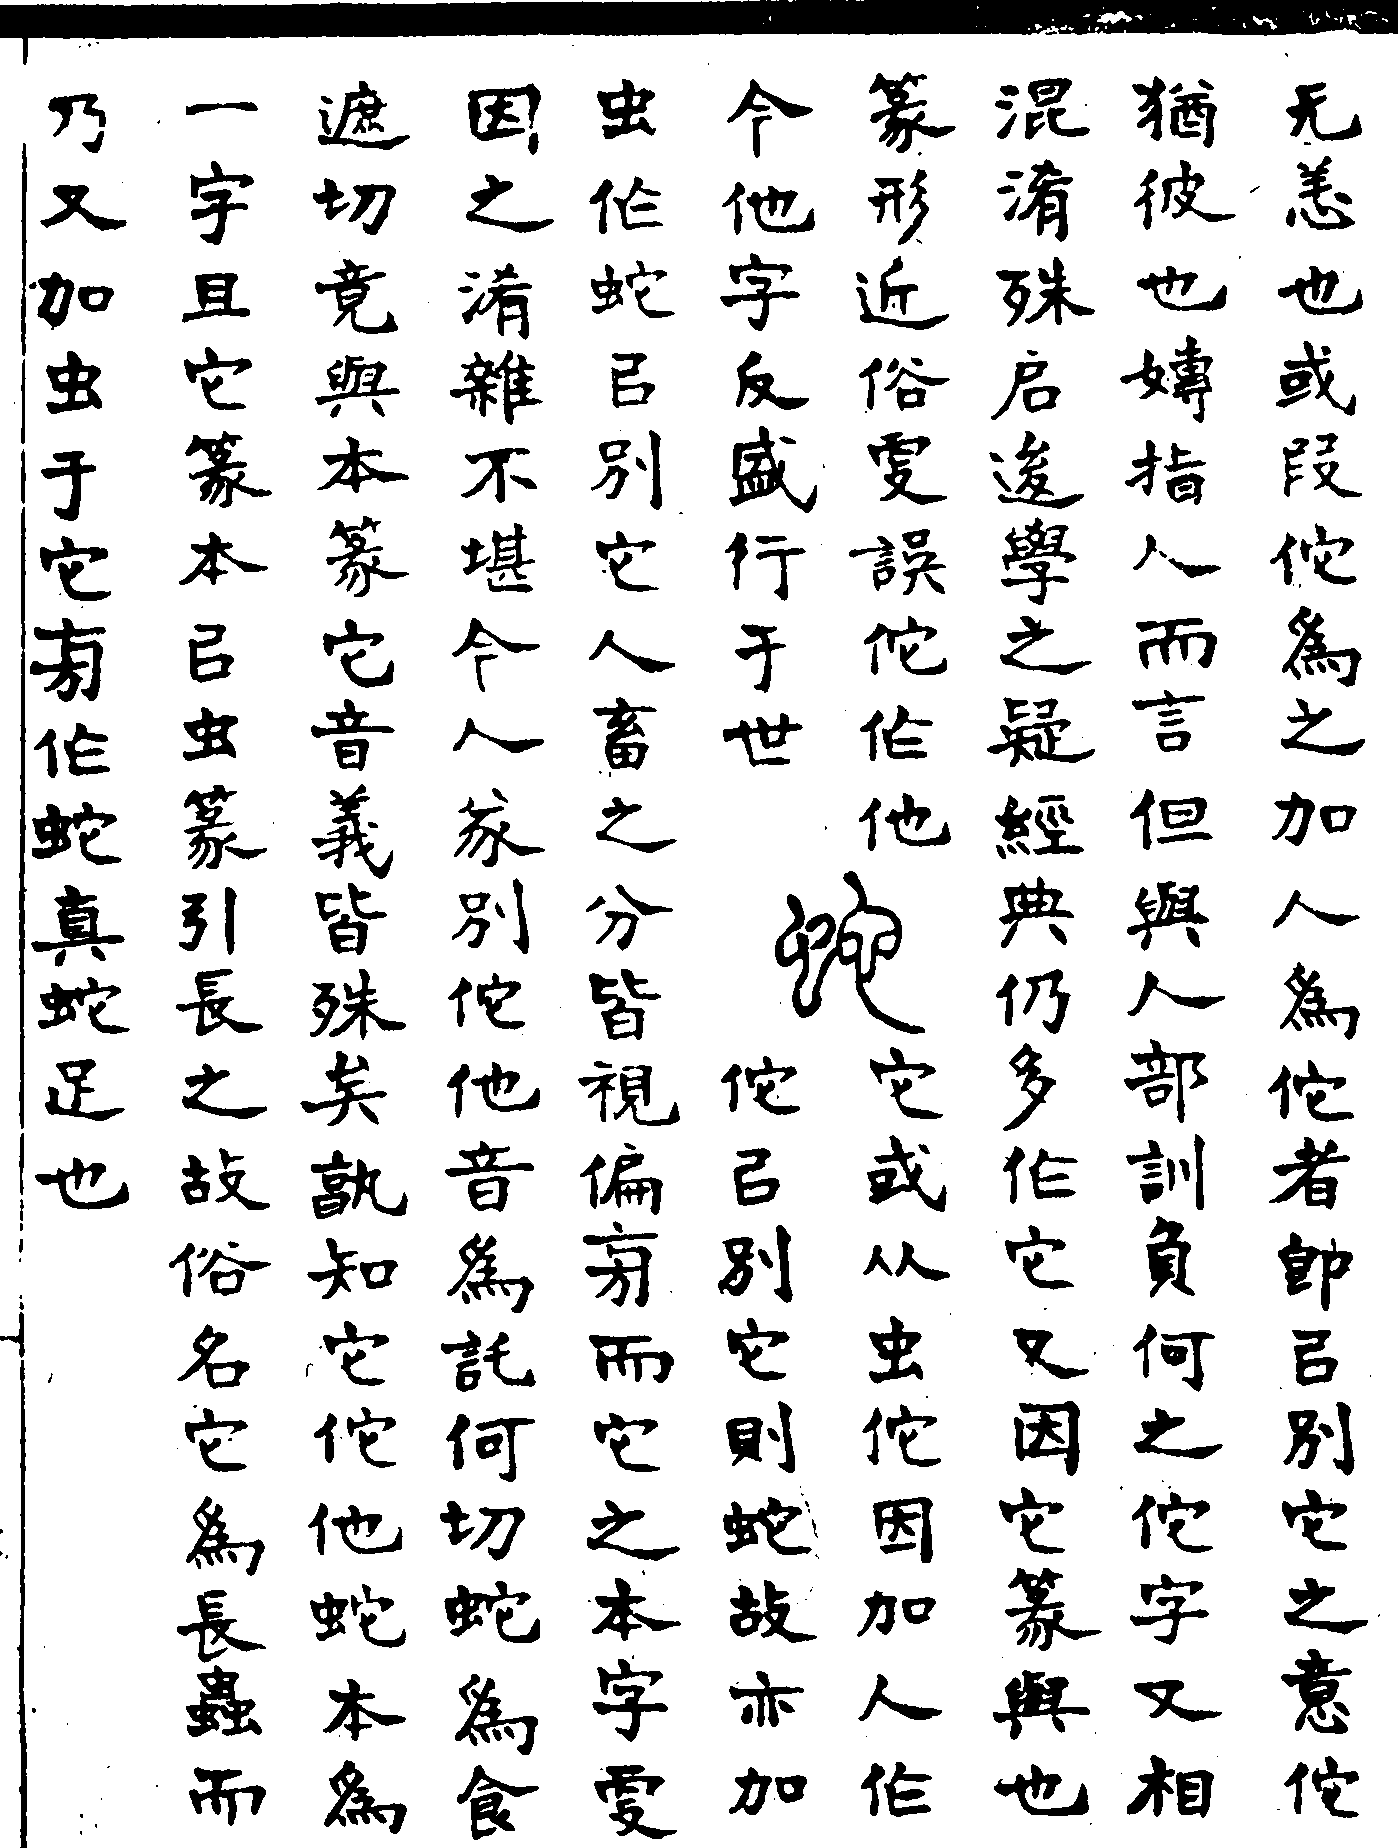 无恙也或叚佗為之加人為佗者即㠯別它之意佗
猶彼也嫥指人而言但與人部訓負何之佗字又相
混淆殊启逡學之疑經典仍多作它又因它篆與也
篆形近俗叓誤佗作他 蛇 它或从虫佗因加人作
今他字反盛行于世 佗㠯別它則蛇故亦加
虫作蛇㠯別它人畜之分皆視偏㫄而它之本字叓
因之淆雜不堪今人㒸別佗他音為託何切蛇為食
遮切竟與本篆它音義皆殊矣孰知它佗他蛇本為
一字且它篆本㠯虫篆引長之故俗名它為長蟲而
乃又加虫于它㫄作蛇真蛇足也